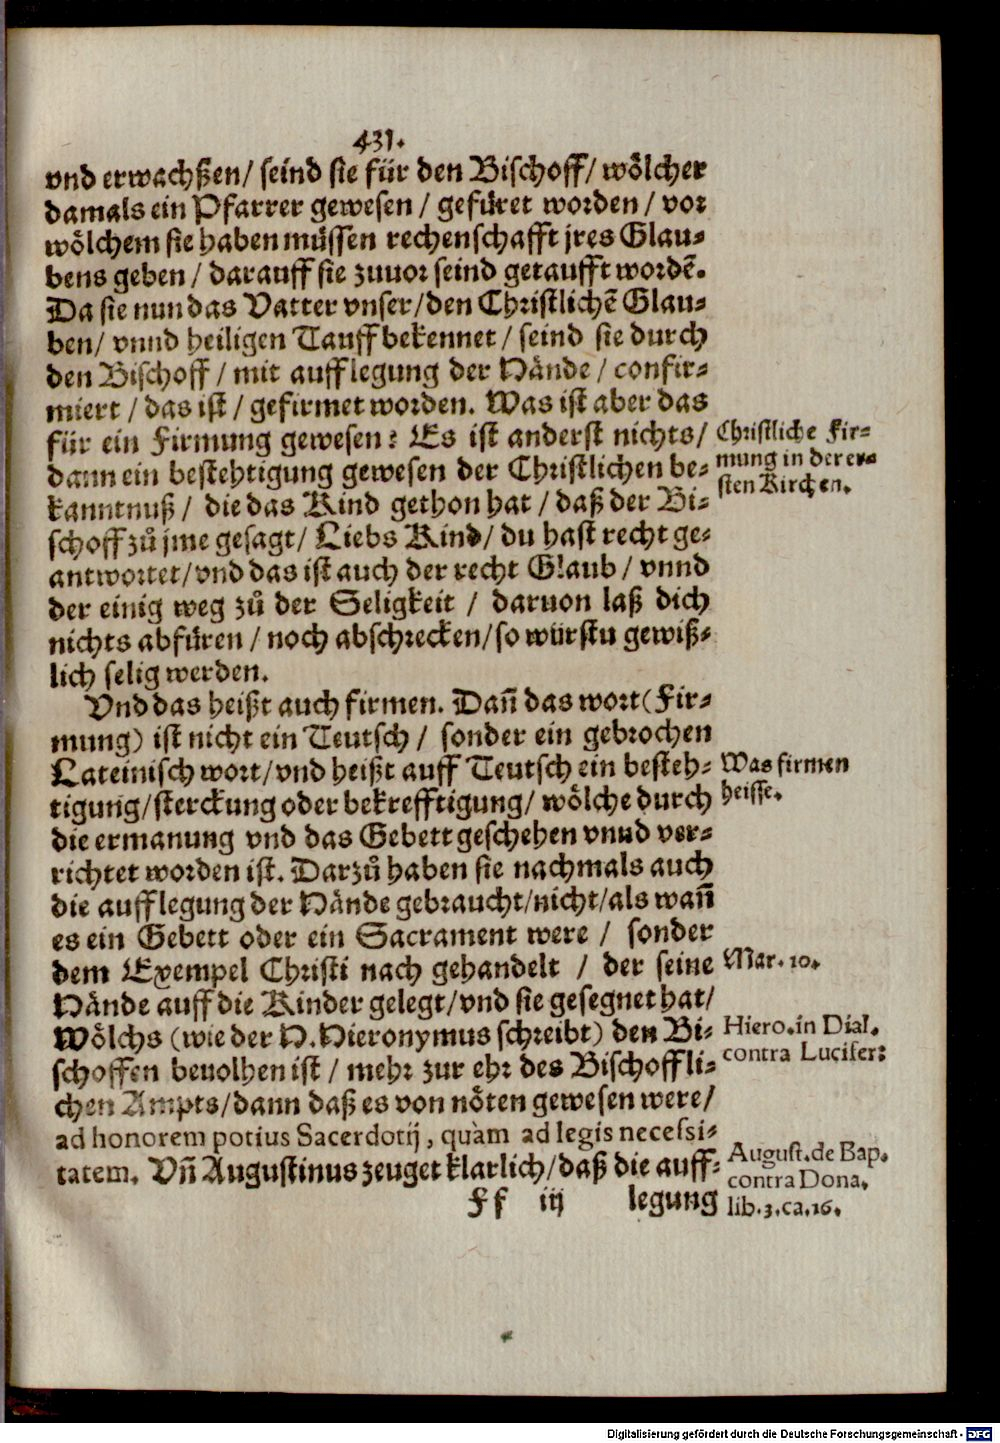 431.
vnd erwachßen/ seind sie für den Bischoff/ wölcher
damals ein Pfarrer gewesen / gefüret worden / vor
wölchem sie haben müssen rechenschafft jres Glau-
bens geben / darauff sie zuuor seind getaufft wordẽ.
Da sie nun das Vatter vnser/den Christlichẽ Glau-
ben/ vnnd heiligen Tauff bekennet / seind sie durch
den Bischoff / mit aufflegung der Hände / confir-
miert / das ist / gefirmet worden. Was ist aber das
für ein Firmung gewesen? Es ist anderst nichts/
Christliche Fir-
mung in der er-
sten Kirchen.
dann ein bestehtigung gewesen der Christlichen be-
kanntnuß / die das Kind gethon hat / daß der Bi-
schoff zů jme gesagt/ Liebs Kind/ du hast recht ge-
antwortet/vnd das ist auch der recht Glaub / vnnd
der einig weg zů der Seligkeit / daruon laß dich
nichts abfüren / noch abschrecken/so würstu gewiß-
lich selig werden.
Vnd das heißt auch firmen. Dañ das wort (Fir-
mung) ist nicht ein Teutsch / sonder ein gebrochen
Lateinisch wort/vnd heißt auff Teutsch ein besteh-
Was firmen
heisse.
tigung/sterckung oder bekrefftigung/ wölche durch
die ermanung vnd das Gebett geschehen vnnd ver-
richtet worden ist. Darzů haben sie nachmals auch
die aufflegung der Hände gebraucht/nicht/als wañ
es ein Gebett oder ein Sacrament were / sonder
dem Exempel Christi nach gehandelt / der seine
Mar. 10.
Hände auff die Kinder gelegt/vnd sie gesegnet hat/
Wölchs (wie der H. Hieronymus schreibt) den Bi-
Hiero. in Dial.
contra Lucifer:
schoffen beuolhen ist / mehr zur ehr des Bischoffli-
chen Ampts/dann daß es von nöten gewesen were/
ad honorem potius Sacerdotij, quàm ad legis necessi-
tatem. Vñ Augustinus zeuget klarlich/daß die auff-
August. de Bap.
contra Dona.
lib. 3. ca. 16.
Ff iij legung
Digitalisierung gefördert durch die Deutsche Forschungsgemeinschaft - DFG